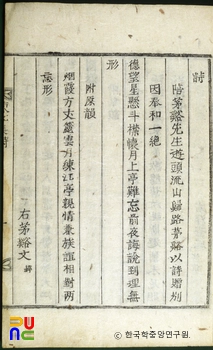 詩
陪茅谿先生遊頭流山歸路茅谿以詩贈別
因奉和一絶
德望星懸斗構懷月上亭難忘前夜誨說到理無
形
附原韻
烟霞方丈簏雲月練江亭親情兼族誼相對两
忘形
右茅谿文
한국학중앙연구원